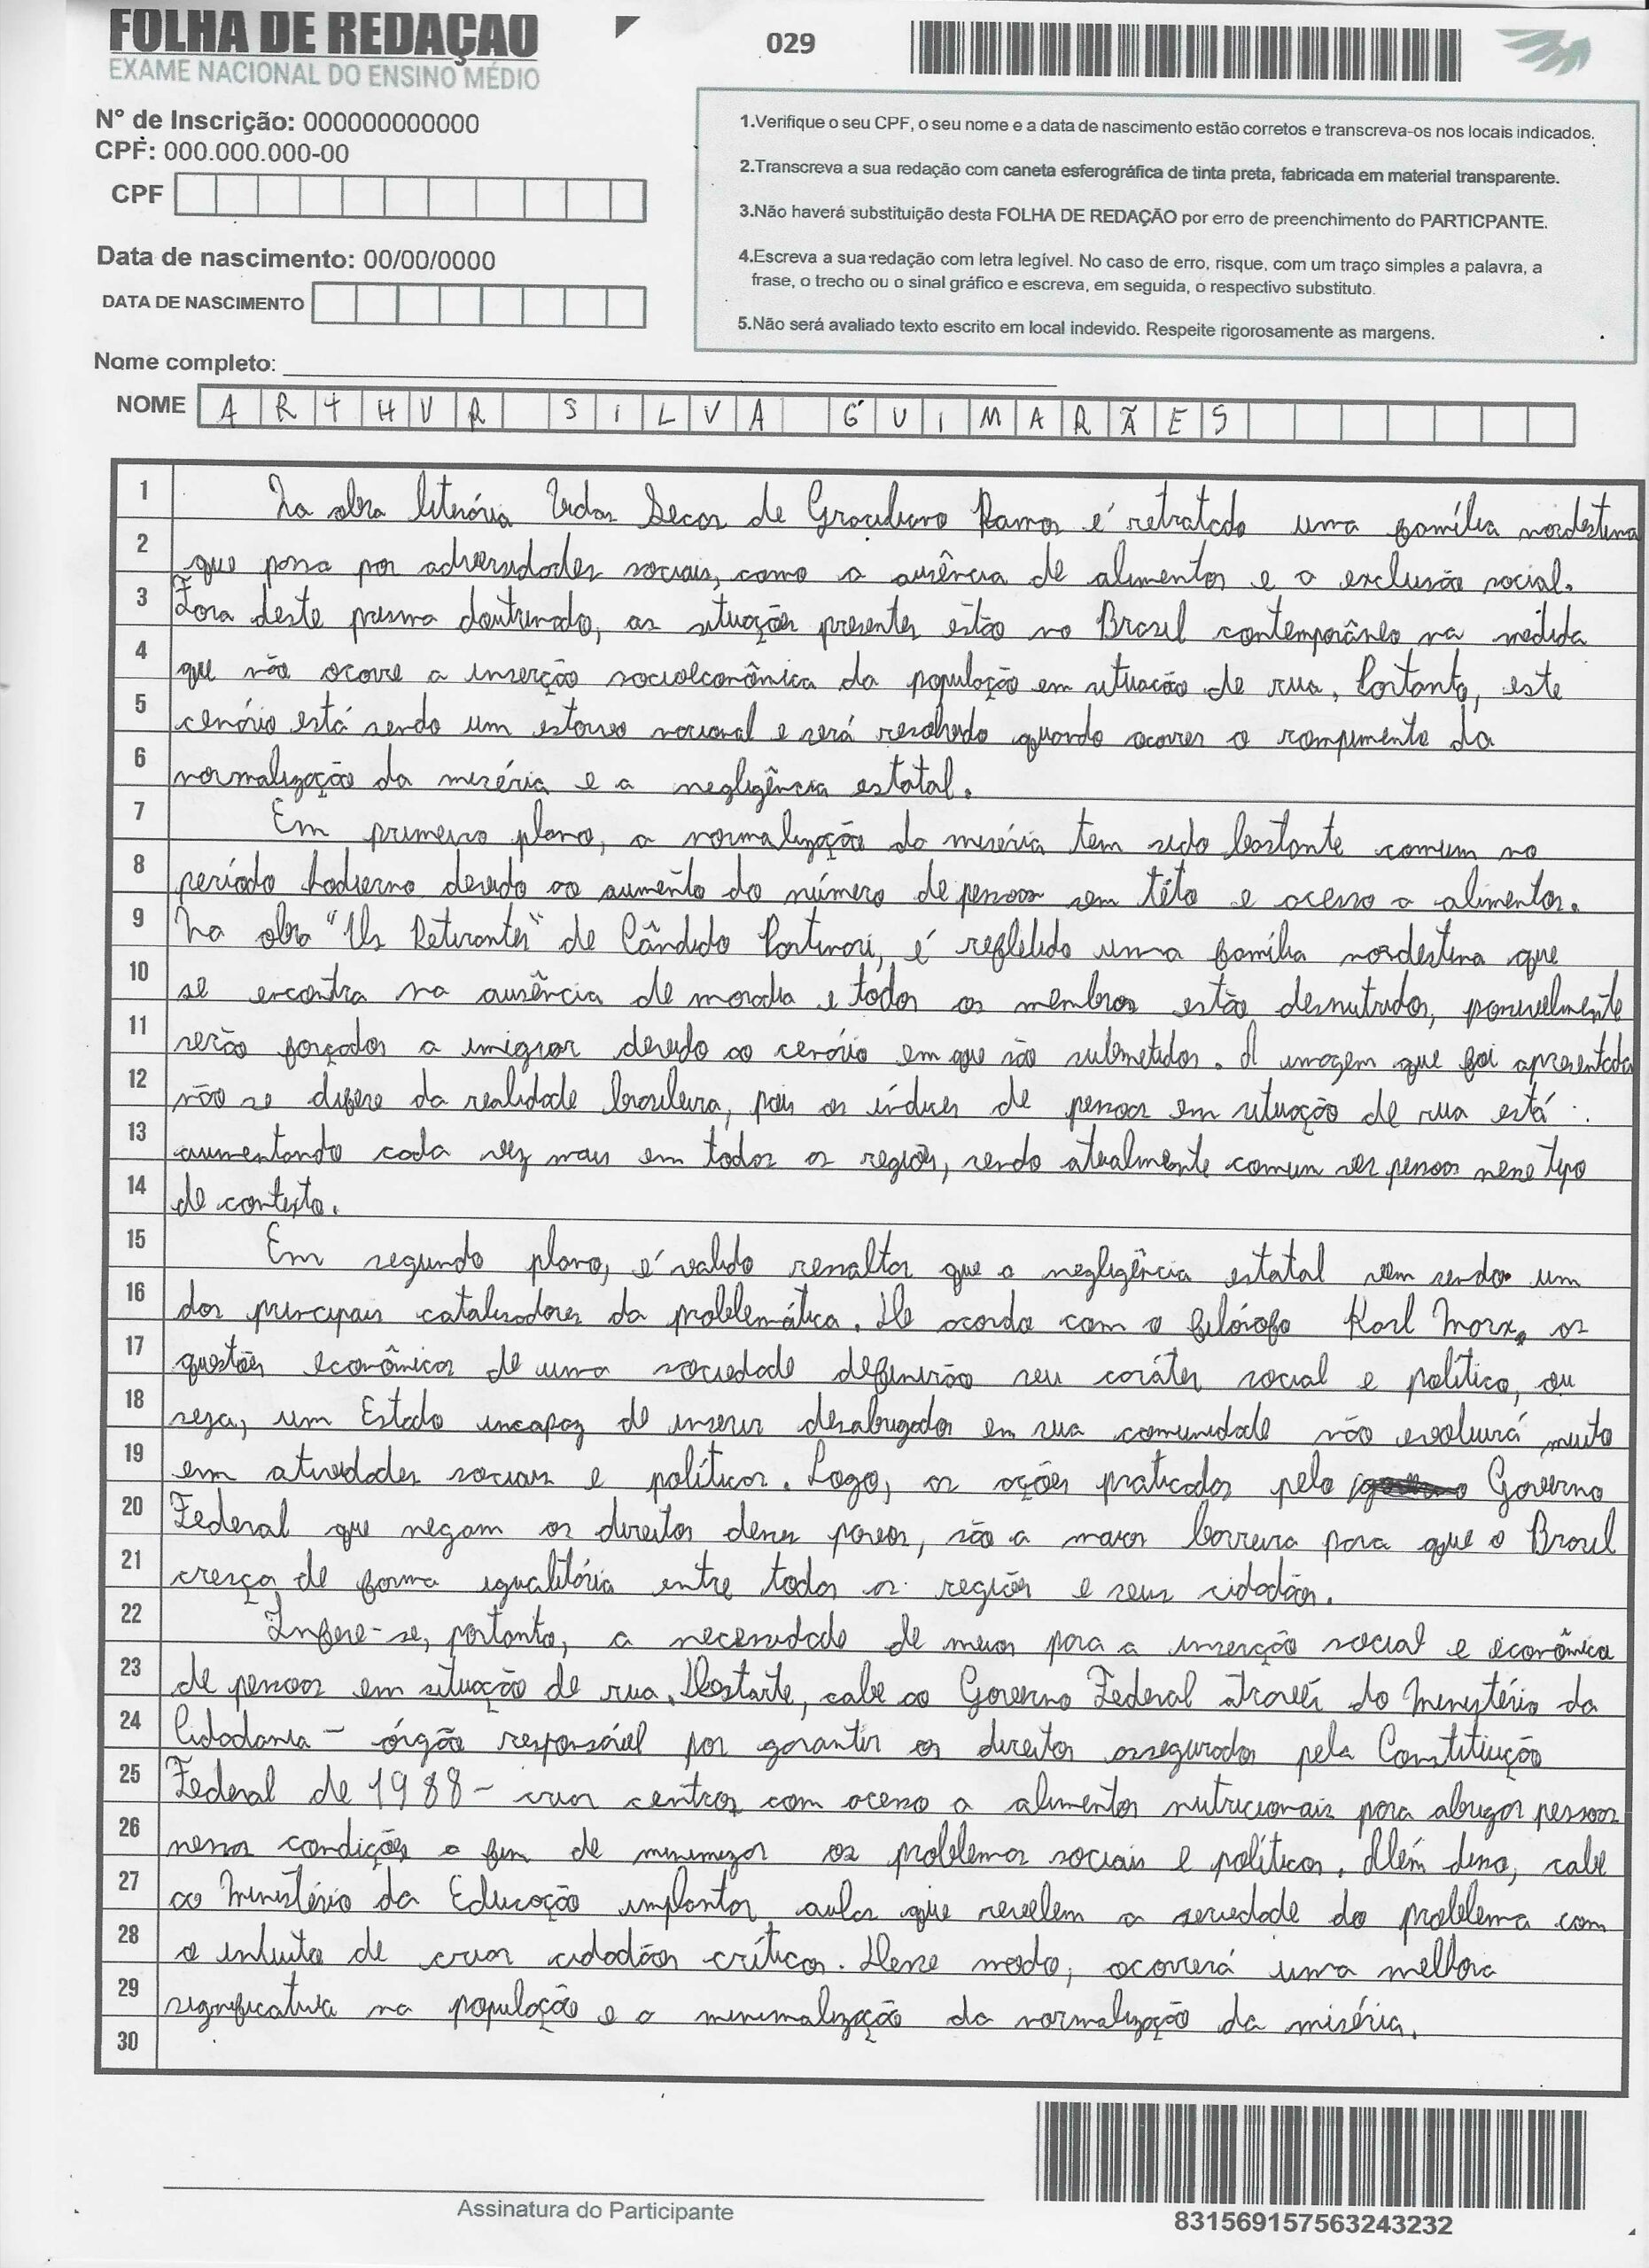 FOLHA DE REDAÇAO
EXAME NACIONAL DO ENSINO MÉDIO
029
Nº de Inscrição: 000000000000
CPF: 000.000.000-00
CPF
Data de nascimento: 00/00/0000
DATA DE NASCIMENTO
1.Verifique o seu CPF, o seu nome e a data de nascimento estão corretos e transcreva-os nos locais indicados.
2.Transcreva a sua redação com caneta esferográfica de tinta preta, fabricada em material transparente.
3.Não haverá substituição desta FOLHA DE REDAÇÃO por erro de preenchimento do PARTICPANTE.
4.Escreva a sua redação com letra legível. No caso de erro, risque, com um traço simples a palavra, a
frase, o trecho ou o sinal gráfico e escreva, em seguida, o respectivo substituto.
5.Não será avaliado texto escrito em local indevido. Respeite rigorosamente as margens.
Nome completo:
NOME ARTHUR SILVA GUIMARÃES
1 Na obra literária Vidas Secas de Graciliano Ramos é retratado uma família nordestina
2 que passa por adversidades sociais, como a ausência de alimentos e a exclusão social.
3 Fora deste prisma doutrinado, as situações presentes estão no Brasil contemporâneo na medida
4 que não ocorre a inserção socioeconômica da população em situacão de rua. Portanto, este
5 cenário está sendo um estorvo nacional e será resolvido quando ocorrer o rompimento da
6 normalização da miséria e a negligência estatal.
7 Em primeiro plano, a normalização da miséria tem sido bastante comum no
8 período hodierno devido ao aumento do número de pessoas sem teto e acesso a alimentos.
9 Na obra "Os Retirantes" de Cândido Portinari, é refletido uma família nordestina que
10 se encontra na ausência de moradia e todos os membros estão desnutridos, possivelmente
11 serão forçados a imigrar devido ao cenário em que são submetidos. A imagem que foi apresentada
12 não se difere da realidade brasileira, pois os índices de pessoas em situação de rua está
13 aumentando cada vez mais em todas as regiões, sendo atualmente comun ver pessoas nesse tipo
14 de contexto.
15 Em segundo plano, é valido ressaltar que a negligência estatal vem sendo um
16 dos principais catalisadores da problemática. De acordo com o filósofo Karl Marx, as
17 questões econômicas de uma sociedade definirão seu caráter social e político, ou
18 seja, um Estado incapaz de inserir desabrigados em sua comunidade não evoluirá muito
19 em atividades sociais e políticas. Logo, as ações praticadas pelo Governo
20 Federal que negam os direitos desses povos, são a maior barreira para que o Brasil
21 cresça de forma igualitária entre todas as regiões e seus cidadãos.
22 Infere-se, portanto, a necessidade de meios para a inserção social e econômica
23 de pessoas em situação de rua. Destarte, cabe ao Governo Federal através do Ministério da
24 Cidadania - órgão responsável por garantir os direitos assegurados pela Constituição
25 Federal de 1988 - criar centros com acesso a alimentos nutricionais para abrigar pessoas
26 nessa condições a fim de minimizar os problemas sociais e políticos. Além disso, cabe
27 ao Ministério da Educação implantar aulas que revelem a seriedade do problema com
28 o intuito de criar cidadãos críticos. Desse modo, ocorrerá uma melhora
29 significativa na população e a minimalização da normalização da miséria.
30
Assinatura do Participante
831569157563243232